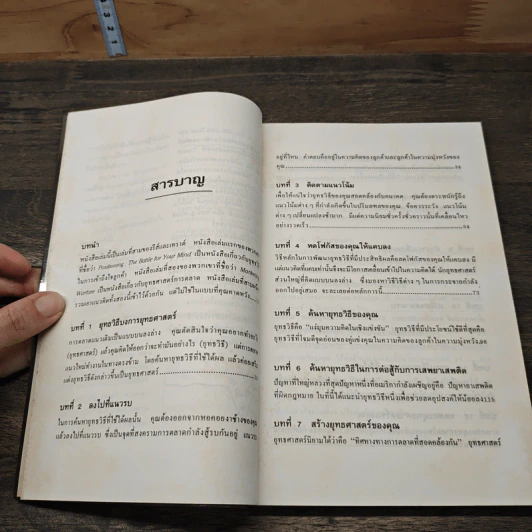 สารบาญ
บทนำ
หนังสือเล่มนี้เป็นเล่มที่สามของไรส์และเทราต์ หนังสือเล่มแรกของพวกเขา
ที่ชื่อว่า Positioning : The Battle for Your Mind เป็นหนังสือเกี่ยวกับยุทธวิธี
ในการเข้าถึงใจลูกค้า หนังสือเล่มที่สองของพวกเขาที่ชื่อว่า Marketing
Warfare เป็นหนังสือเกี่ยวกับยุทธศาสตร์การตลาด หนังสือเล่มนี้
รวมเอาแนวคิดทั้งสองนี้เข้าไว้ด้วยกัน แต่ไม่ใช่ในแบบที่คุณคาดหวัง
บทที่ 1 ยุทธวิธีบงการยุทธศาสตร์
การตลาดแนวเดิมเป็นแบบบนลงล่าง คุณตัดสินใจว่าคุณอยากทำอะไร
(ยุทธศาสตร์) แล้วคุณคิดให้ออกว่าจะทำมันอย่างไร (ยุทธวิธี) แต่การตลาด
แนวใหม่ทำงานในทางตรงข้าม โดยค้นหายุทธวิธีที่ใช้ได้ผล แล้วค่อย
แต่งยุทธวิธีดังกล่าวขึ้นเป็นยุทธศาสตร์
บทที่ 2 ลงไปที่แนวรบ
ในการค้นหายุทธวิธีที่ใช้ได้ผลนั้น คุณต้องออกจากหอคอยงาช้างของคุณ
แล้วลงไปที่แนวรบ ซึ่งเป็นจุดที่สงครามการตลาดกำลังสู้รบกันอยู่ แนวรบ
อยู่ที่ไหน คำตอบคืออยู่ในความคิดของลูกค้าและลูกค้าในความมุ่งหวังของ
คุณ
บทที่ 3 ติดตามแนวโน้ม
เพื่อให้แน่ใจว่ายุทธวิธีของคุณสอดคล้องกับอนาคต คุณต้องตระหนักรู้ถึง
แนวโน้มต่าง ๆ ที่กำลังเกิดขึ้นในปริมณฑลของคุณ ข้อควรระวัง แนวโน้ม
ต่าง ๆ เปลี่ยนแปลงช้ามาก มีแต่ความนิยมชั่วครั้งชั่วคราวนั้นที่เคลื่อนไหว
อย่างรวดเร็ว
บทที่ 4 หดโฟกัสของคุณให้แคบลง
วิธีหลักในการพัฒนายุทธวิธีที่มีประสิทธิผลคือหดโฟกัสของคุณให้แคบลง มี
แต่แนวคิดที่แคบเท่านั้นจึงจะมีโอกาสเคลื่อนเข้าไปในความคิดได้ นักยุทธศาสตร์
ส่วนใหญ่ที่คิดแบบบนลงล่าง ซึ่งมองหาวิธีใช้วิธีต่าง ๆ ในการกระจายกำลัง
ออกไปอยู่เสมอ จะละเลยต่อหลักการนี้
บทที่ 5 ค้นหายุทธวิธีของคุณ
ยุทธวิธีคือ "แง่มุมความคิดในเชิงแข่งขัน" ยุทธวิธีที่มีประโยชน์ใช้ดีที่สุดคือ
ยุทธวิธีที่โจมตีจุดอ่อนของคู่แข่งคุณในความคิดของลูกค้าในความมุ่งหวัง
บทที่ 6 ค้นหายุทธวิธีในการต่อสู้กับการเสพยาเสพติด
ปัญหาที่ใหญ่หลวงที่สุดปัญหาหนึ่งที่อเมริกากำลังเผชิญอยู่คือ ปัญหายาเสพติด
ที่ผิดกฎหมาย ในที่นี้ได้แนะนำยุทธวิธีหนึ่งเพื่อช่วยลดอุปสงค์ให้น้อยลง
บทที่ 7 สร้างยุทธศาสตร์ของคุณ
ยุทธศาสตร์นิยามได้ว่าคือ "ทิศทางทางการตลาดที่สอดคล้องกัน" ยุทธศาสตร์